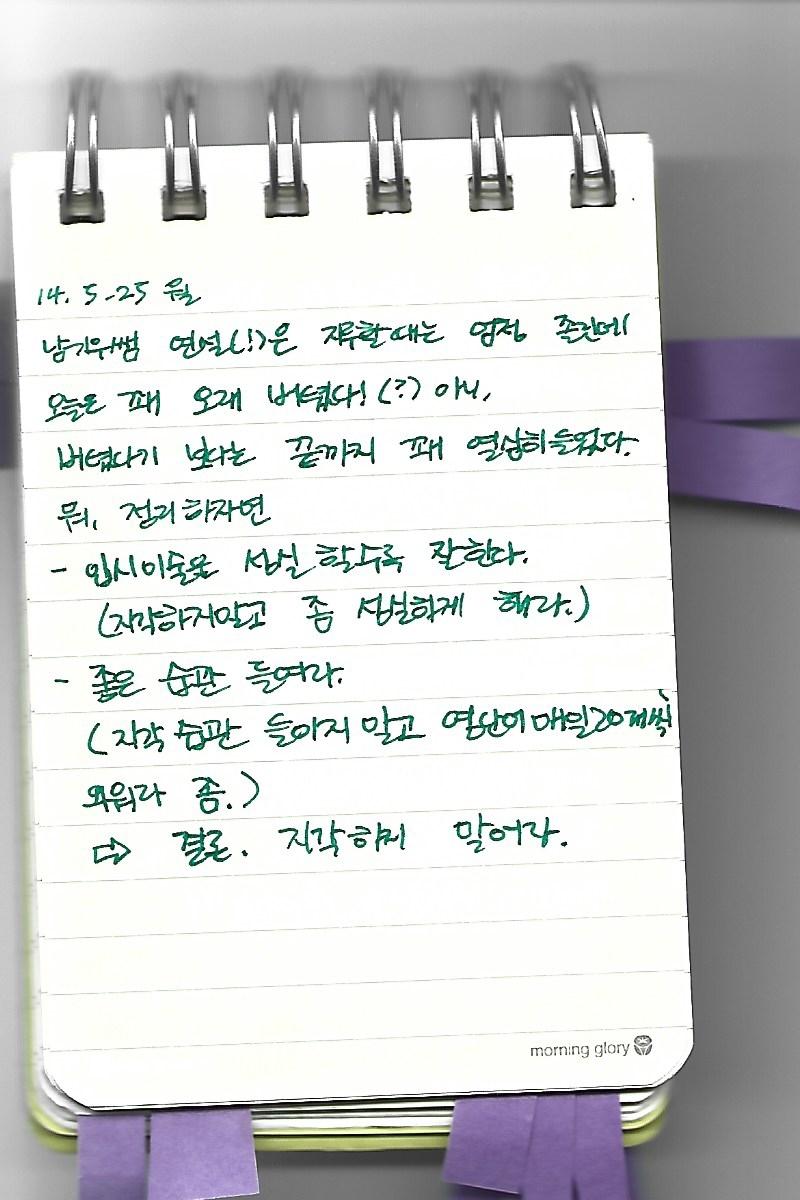 14. 5. 25 월
남기위쌤 연설(!)은 지루할때는 엄청 졸린데
오늘은 꽤 오래 버텼다! (?) 아니,
버텼다기 보다는 끝까지 꽤 열심히 들었다.
뭐, 정리하자면
- 입시미술은 성실할수록 잘한다.
(지각하지말고 좀 성실하게 해라.)
- 좋은 습관 들여라.
(지각 습관 들이지 말고 영단어 매일 20개씩
외워라 좀.)
⇨ 결론. 지각하지 말어라.
morning glory